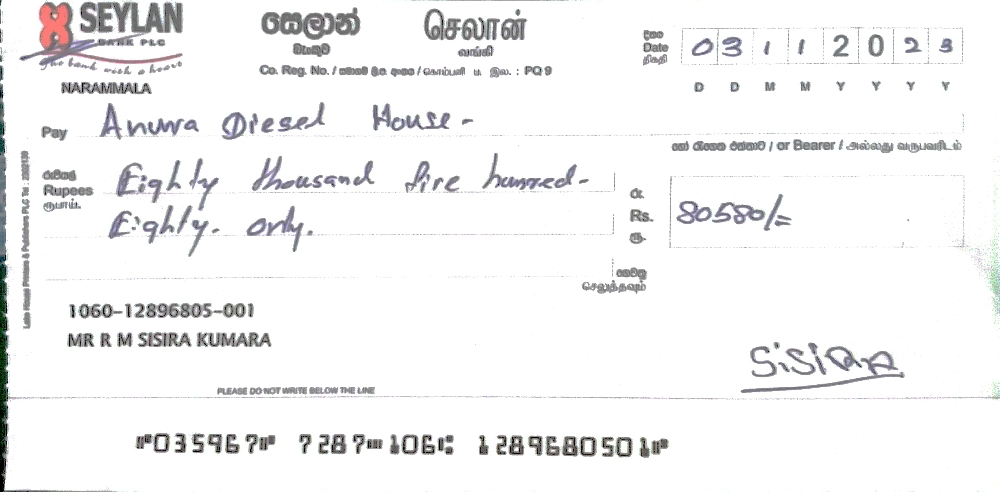 SEYLAN
BANK PLC
the bank with a heart
NARAMMALA
සෙලාන්
බැංකුව
செலான்
வங்கி
Co. Reg. No. / සමාගම් ලියා. අංකය / கம்பனி ப. இல. : PQ 9
දිනය
Date
திகதி
0 3 1 1 2 0 2 3
D D M M Y Y Y Y
Pay Anura Diesel House -
හෝ රැගෙන එන්නාට / or Bearer / அல்லது வருபவரிடம்
රුපියල්
Rupees
ரூபாய்
Eighty thousand five hunred -
Eighty. only.
රු.
Rs.
ரூ.
80580/=
ගෙවනු
செலுத்தவும்
Lake House Printers & Publishers PLC Tel : 2302139
1060-12896805-001
MR R M SISIRA KUMARA
SiSiRA
PLEASE DO NOT WRITE BELOW THE LINE
⑈035967⑈ 7287⑉106⑆ 128968050 1⑈